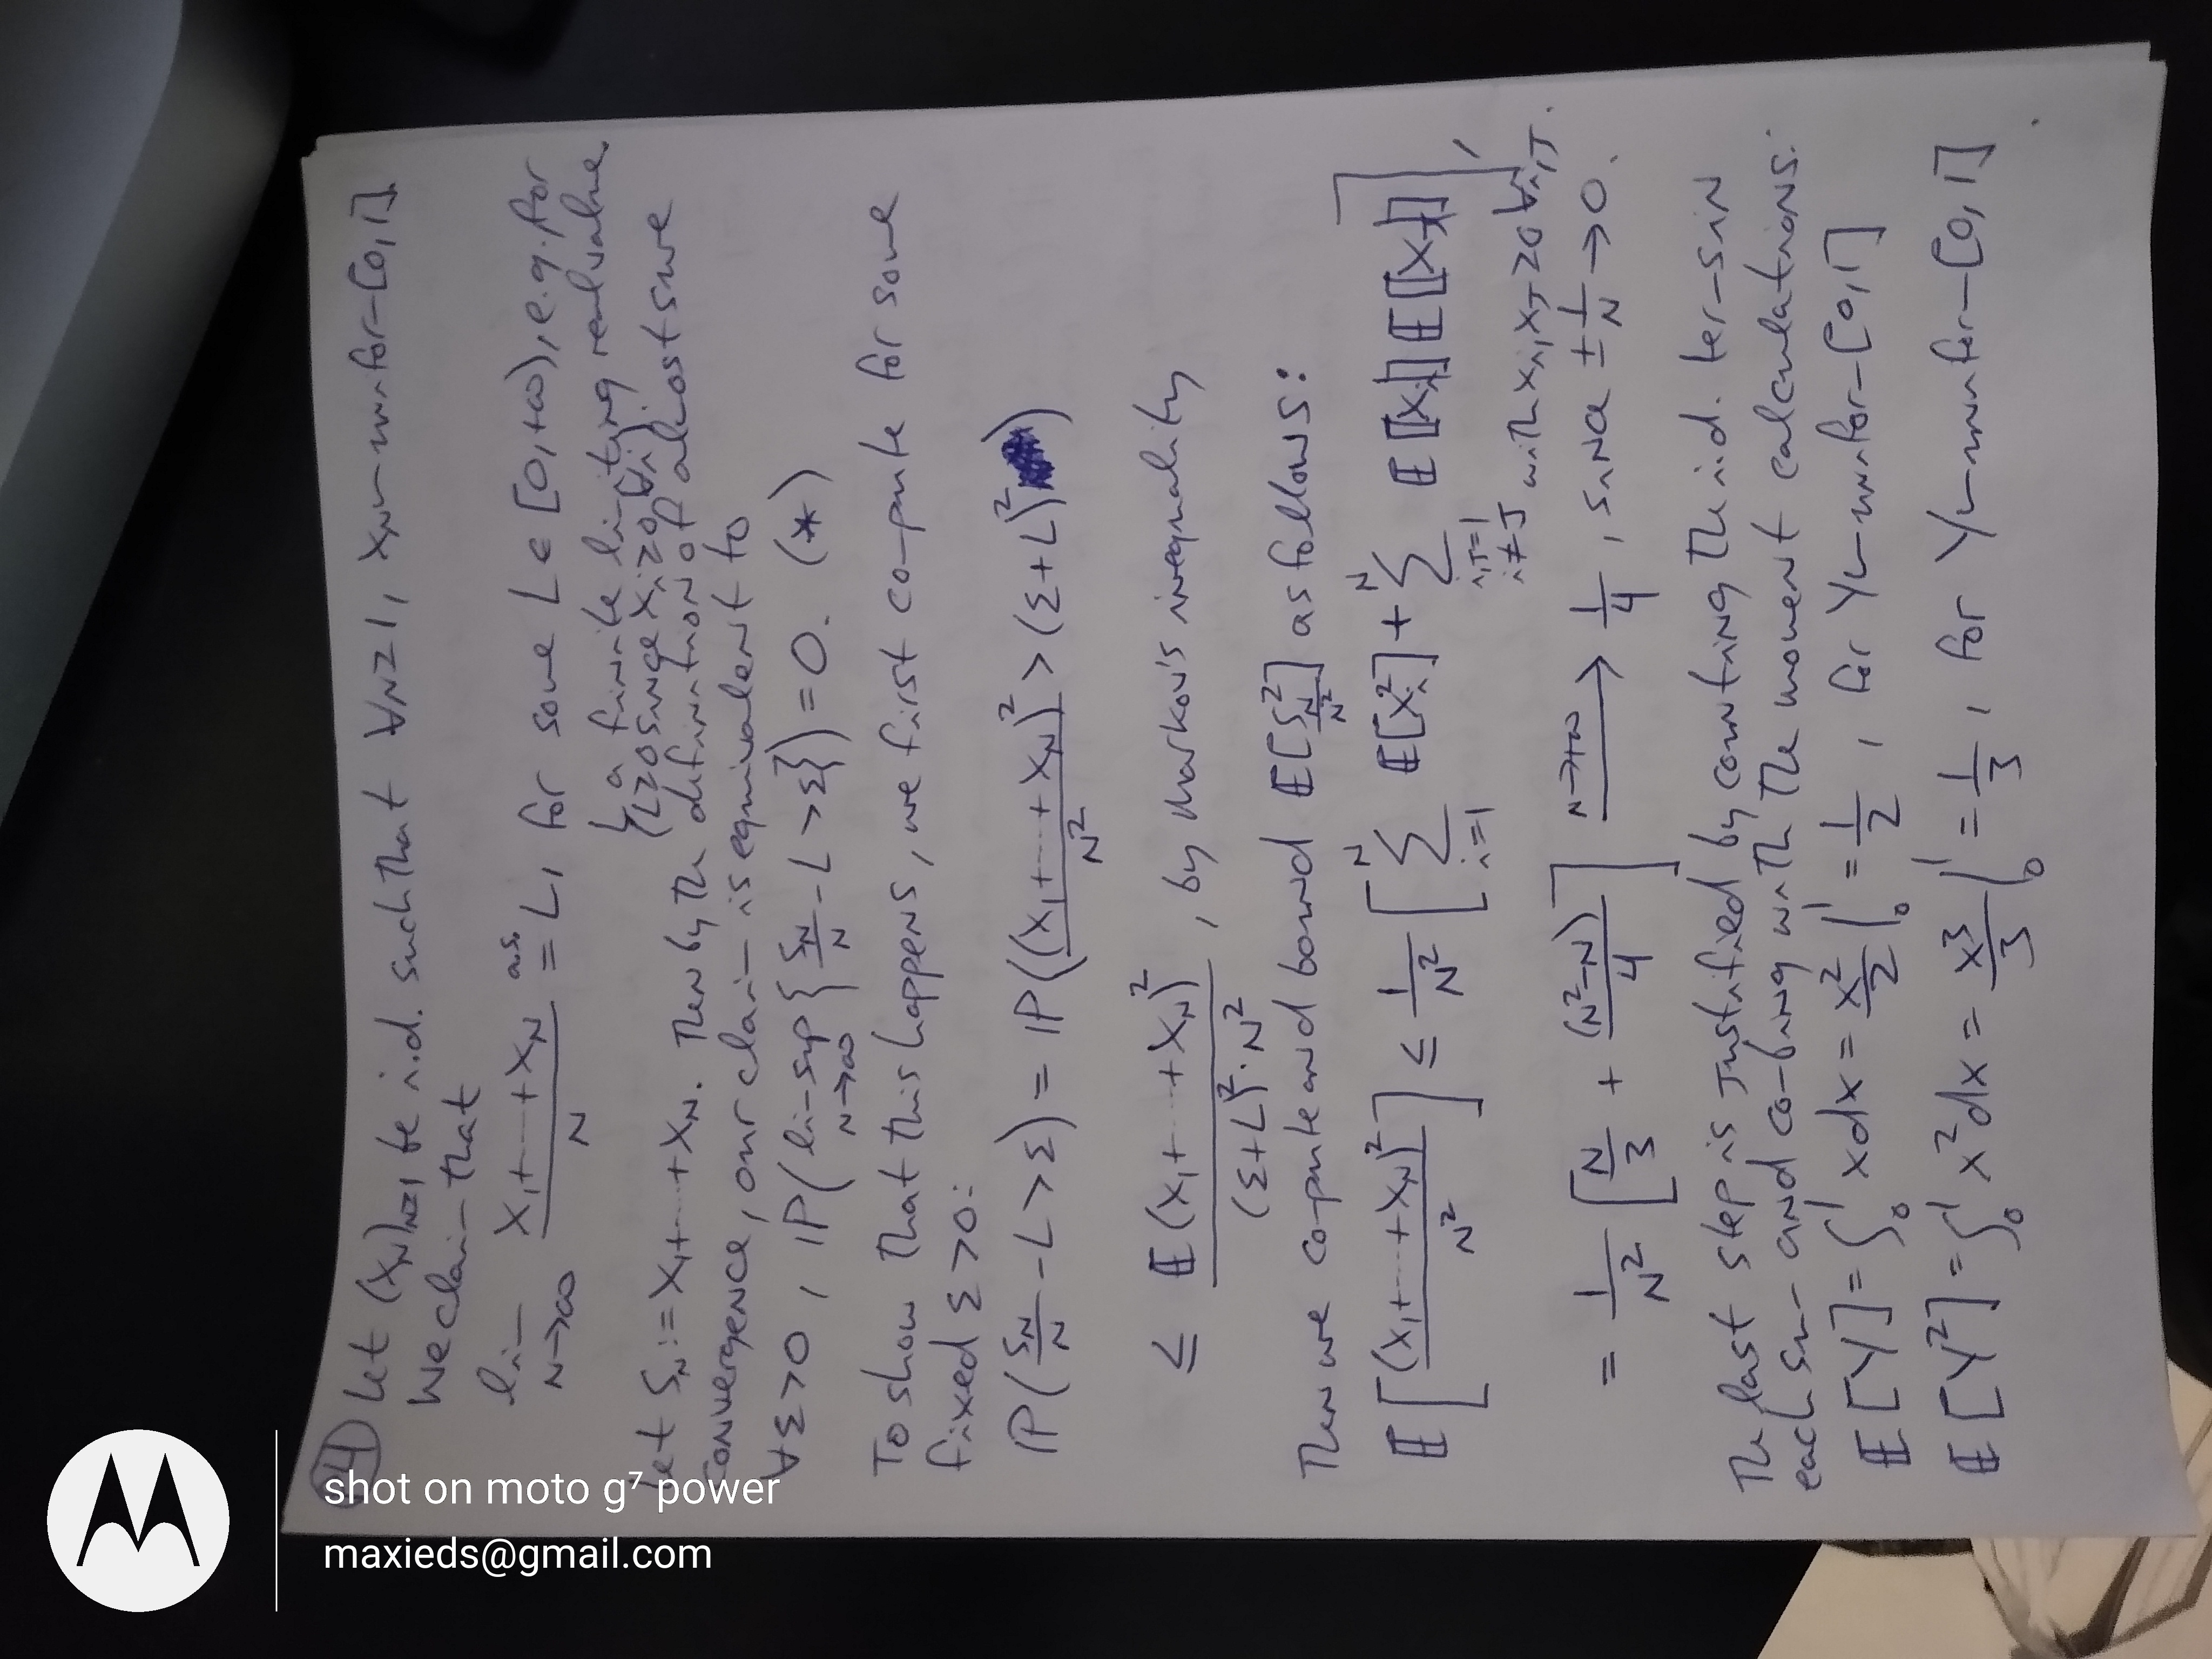 24) Let (X_N)_{N≥1} be i.i.d. such that ∀N≥1, X_N ~ uniform[0,1].
We claim that
lim_{N→∞} (X_1+····+X_N)/N =^{a.s.} L, for some L ∈ [0,+∞), e.g. for
a finite limiting real value
(L≥0 since X_i≥0 ∀i).
Let S_N := X_1+····+X_N. Then by the definition of almost sure
convergence, our claim is equivalent to
∀Σ>0, IP(limsup_{N→∞} {S_N/N - L > Σ}) = 0. (*)
To show that this happens, we first compute for some
fixed Σ>0:
IP(S_N/N - L > Σ) = IP((X_1+····+X_N)^2/N^2 > (Σ+L)^2)
≤ E(X_1+····+X_N)^2/((Σ+L)^2·N^2), by Markov's inequality
Then we compute and bound E[S_N^2/N^2] as follows:
E[(X_1+····+X_N)^2/N^2] ≤ 1/N^2 [∑_{i=1}^N E[X_i^2] + ∑_{i,J=1, i≠J}^N E[X_i] E[X_J]],
with X_i, X_J ≥0 ∀i,J.
= 1/N^2 [N/3 + (N^2-N)/4] →^{N→+∞} 1/4, since ± 1/N → 0.
The last step is justified by counting the i.i.d. terms in
each sum and combining with the moment calculations:
E[Y] = ∫_0^1 x dx = x^2/2 |_0^1 = 1/2, for Y ~ uniform[0,1]
E[Y^2] = ∫_0^1 x^2 dx = x^3/3 |_0^1 = 1/3, for Y ~ uniform[0,1].
shot on moto g⁷ power
maxieds@gmail.com